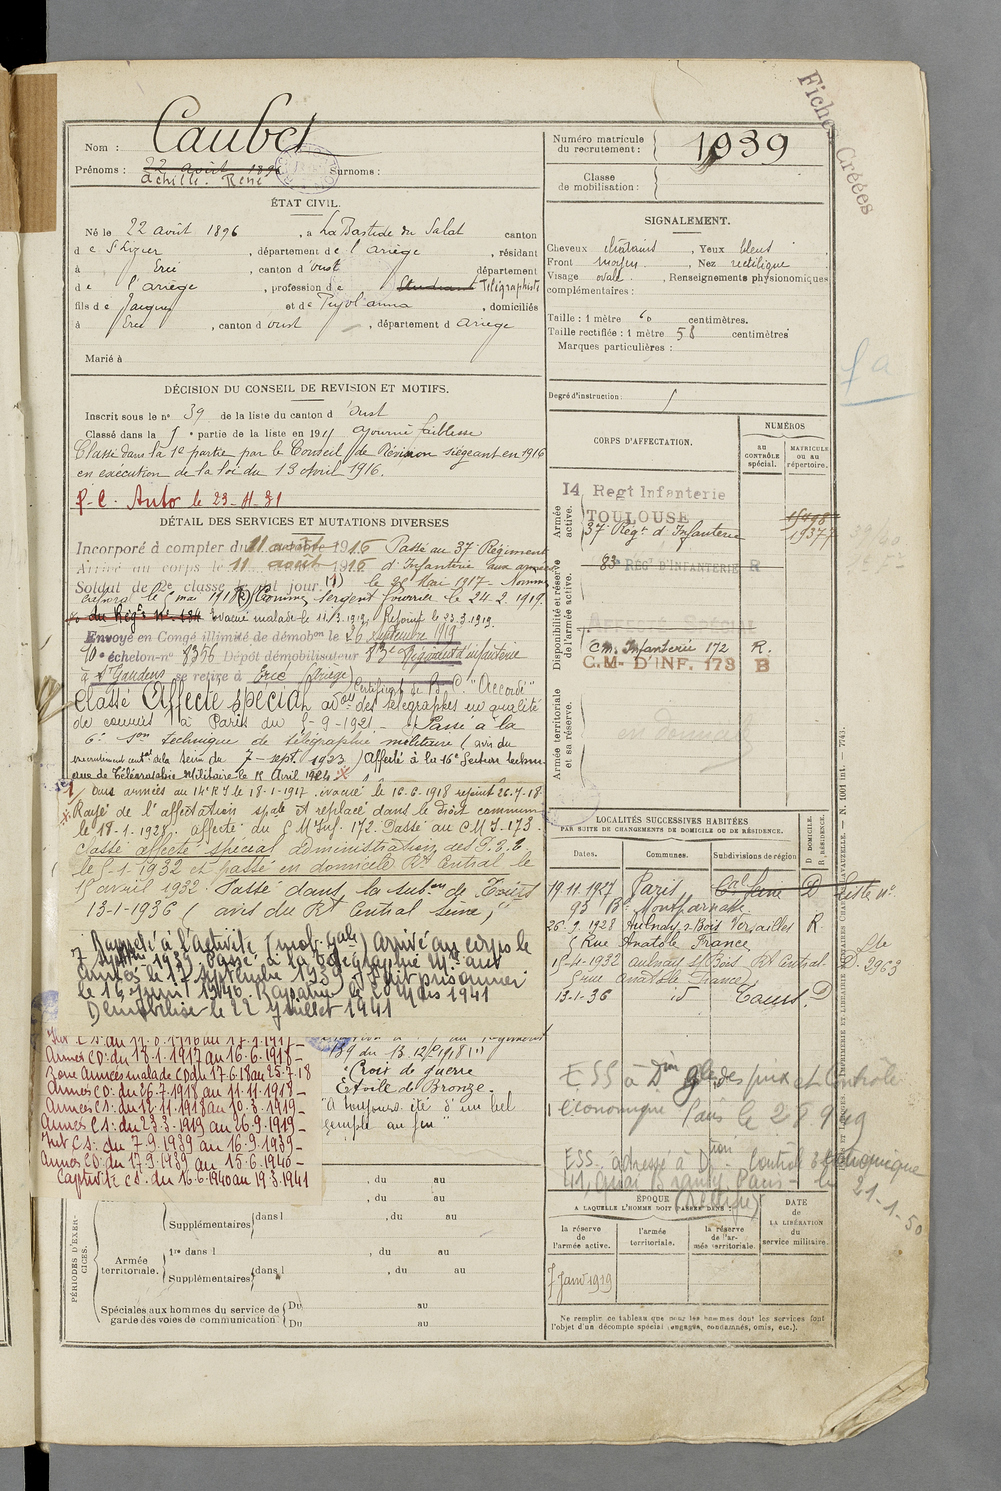 Fiches Créées
Nom : Caubet
Prénoms : 22 avril 1896 Surnoms :
Achille René
ÉTAT CIVIL.
Né le 22 avril 1896, à La Bastide du Salat canton
de St Lizier, département de l'ariège, résidant
à Ercé, canton d'oust département
de l'ariège, profession de Etudiant Télégraphiste
fils de Jacques et de Pujol anna, domiciliés
à Ercé, canton d oust, département d ariege
Marié à
DÉCISION DU CONSEIL DE REVISION ET MOTIFS.
Inscrit sous le n° 39 de la liste du canton d'oust
Classé dans la 5e partie de la liste en 1915 ajourné faiblesse
Classé dans la 1e partie par le Conseil de Révision siégeant en 1916
en exécution de la loi du 13 avril 1916.
P.C. Auto le 23-11-31
DÉTAIL DES SERVICES ET MUTATIONS DIVERSES
Incorporé à compter du 11 août 1916 Passé au 37e Régiment
Arrivé au corps le 11 août 1916 d'Infanterie aux armées
Soldat de 2e classe le dit jour. (1) le 28 Mai 1917. Nommé
caporal le 6 mai 1918 (2) Nommé Sergent fourrier le 24.2.1919.
Evacué malade le 11/3.1919, Rejoint le 23.3.1919.
Envoyé en Congé illimité de démobon le 26 septembre 1919
10e échelon-n° 8356 Dépôt démobilisateur 83e Régiment d'infanterie
à St Gaudens se retire à Ercé (Ariège) Certificat de B.C. "Accordé"
Classé Affecté spécial admon des télégraphes en qualité
de commis à Paris du 5-9-1921 - Passé à la
6e son technique de télégraphie militaire (avis du
recrutement centrel de la Seine du 7-sept. 1923) Affecté à la 16e Section techni-
que de Télégraphie Militaire le 15 Avril 1924
1) aux armées au 14e R.I le 18-1-1917. évacué le 16-6-1918 rejoint 26-7-18
Rayé de l'affectation spale et replacé dans le droit commun
le 18-1-1928. affecté du C M Inf. 172. Passé au C M I-173.
Classé affecté spécial administration des P.T.T.
le 5-1-1932 et passé en domicile Rt Central le
15 avril 1932. Passé dans la subon de Tours
13-1-1936 (avis du Rt Central Seine)
Rappelé à l'activité (mob. gale) arrivé au corps le
7 septbre 1939. Passé à la Télégraphie Mre aux
armées le 17 septembre 1939. Fait prisonnier
le 16 Juin 1940. Rapatrié le 20 Mars 1941
Démobilisé le 22 Juillet 1941
Armées CD: du 18.1.1917 au 16.6.1918 -
Zone Armées malade CD du 17.6.18 au 25.7.18
Armées CD: du 26.7.1918 au 11.11.1918 -
Armées CS: du 12.11.1918 au 10.3.1919 -
Armées CS: du 23.3.1919 au 26.9.1919 -
Int CS: du 7.9.1939 au 16.9.1939 -
Armées CD: du 17.9.1939 au 15.6.1940 -
Captivité CS. du 16.6.1940 au 19.3.1941
139 du 13.12.1918
"Croix de guerre
Étoile de Bronze.
"a toujours été d'un bel
exemple au feu"
, du au
Supplémentaires dans l , du au
PÉRIODES D'EXERCICES.
Armée territoriale. 1re dans l , du au
Supplémentaires dans l , du au
Spéciales aux hommes du service de garde des voies de communication Du au
Du au
Numéro matricule du recrutement : 1939
Classe de mobilisation :
SIGNALEMENT.
Cheveux châtains, Yeux bleus
Front moyen, Nez rectiligne
Visage ovale, Renseignements physionomiques
complémentaires :
Taille : 1 mètre 60 centimètres.
Taille rectifiée : 1 mètre 58 centimètres
Marques particulières :
Degré d'instruction :
fa
CORPS D'AFFECTATION.
NUMÉROS
AU CONTRÔLE spécial.
MATRICULE OU AU répertoire.
Armée active.
14 Regt Infanterie
TOULOUSE 15498
37e Régt d'Infanterie 19377
Disponibilité et réserve de l'armée active.
83e REGt D'INFANTERIE R
Affecté Spécial
C.M. Infanterie 172 R.
C.M. D'INF. 173 B
Armée territoriale et sa réserve.
en domicile
LOCALITÉS SUCCESSIVES HABITÉES
PAR SUITE DE CHANGEMENTS DE DOMICILE OU DE RÉSIDENCE.
Dates. Communes. Subdivisions de région D. DOMICILE. R. RÉSIDENCE.
19.11.1927 Paris Cal Seine D Liste n°
93 Bd Montparnasse
26.9.1928 Aulnay s Bois Versailles R
5 Rue Anatole France
15-4-1932 aulnay s/Bois Rt Central D. 2963
5 rue Anatole France
13-1-36 id Tours D
ESS à Don gle des prix et Contrôle
économique Paris le 28.9.49
ESS. adressé à Dtion Contrôle économique
41, Quai Branly, Paris - le
21-1-50
ÉPOQUE
A LAQUELLE L'HOMME DOIT PASSER DANS :
la réserve de l'armée active.
l'armée territoriale.
la réserve de l'armée territoriale.
DATE DE LA LIBÉRATION du service militaire.
7 Janv 1919
Ne remplir ce tableau que pour les hommes dont les services font
l'objet d'un décompte spécial (engagés, condamnés, omis, etc.).